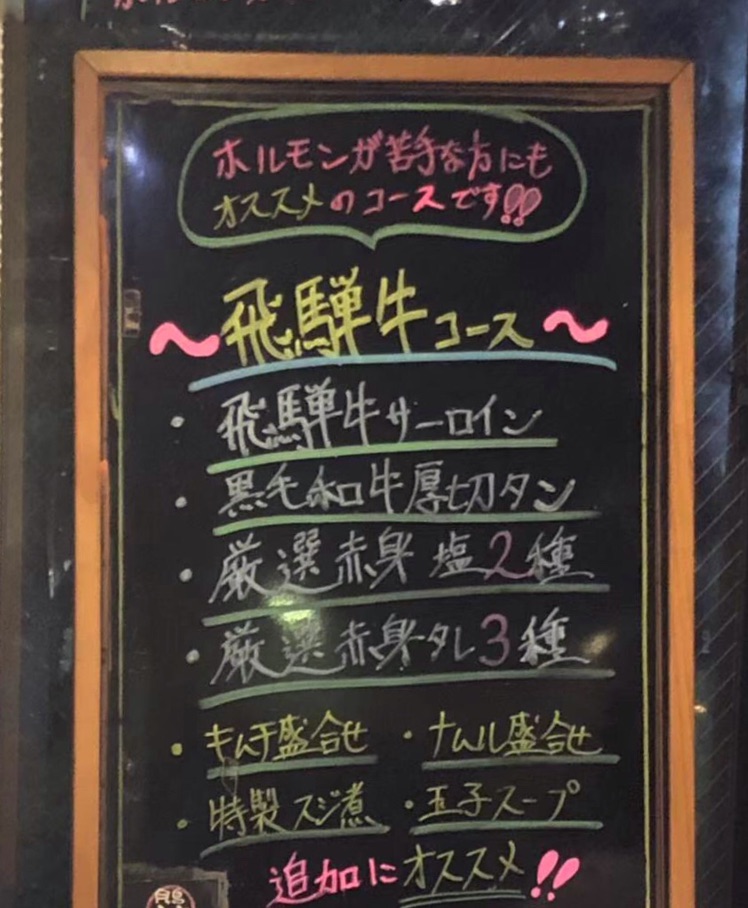 ホルモンが苦手な方にも
オススメのコースです!!
〜飛騨牛コース〜
・飛騨牛サーロイン
・黒毛和牛厚切タン
・厳選赤身塩2種
・厳選赤身タレ3種
・キムチ盛合せ ・ナムル盛合せ
・特製スジ煮 ・玉子スープ
追加にオススメ!!